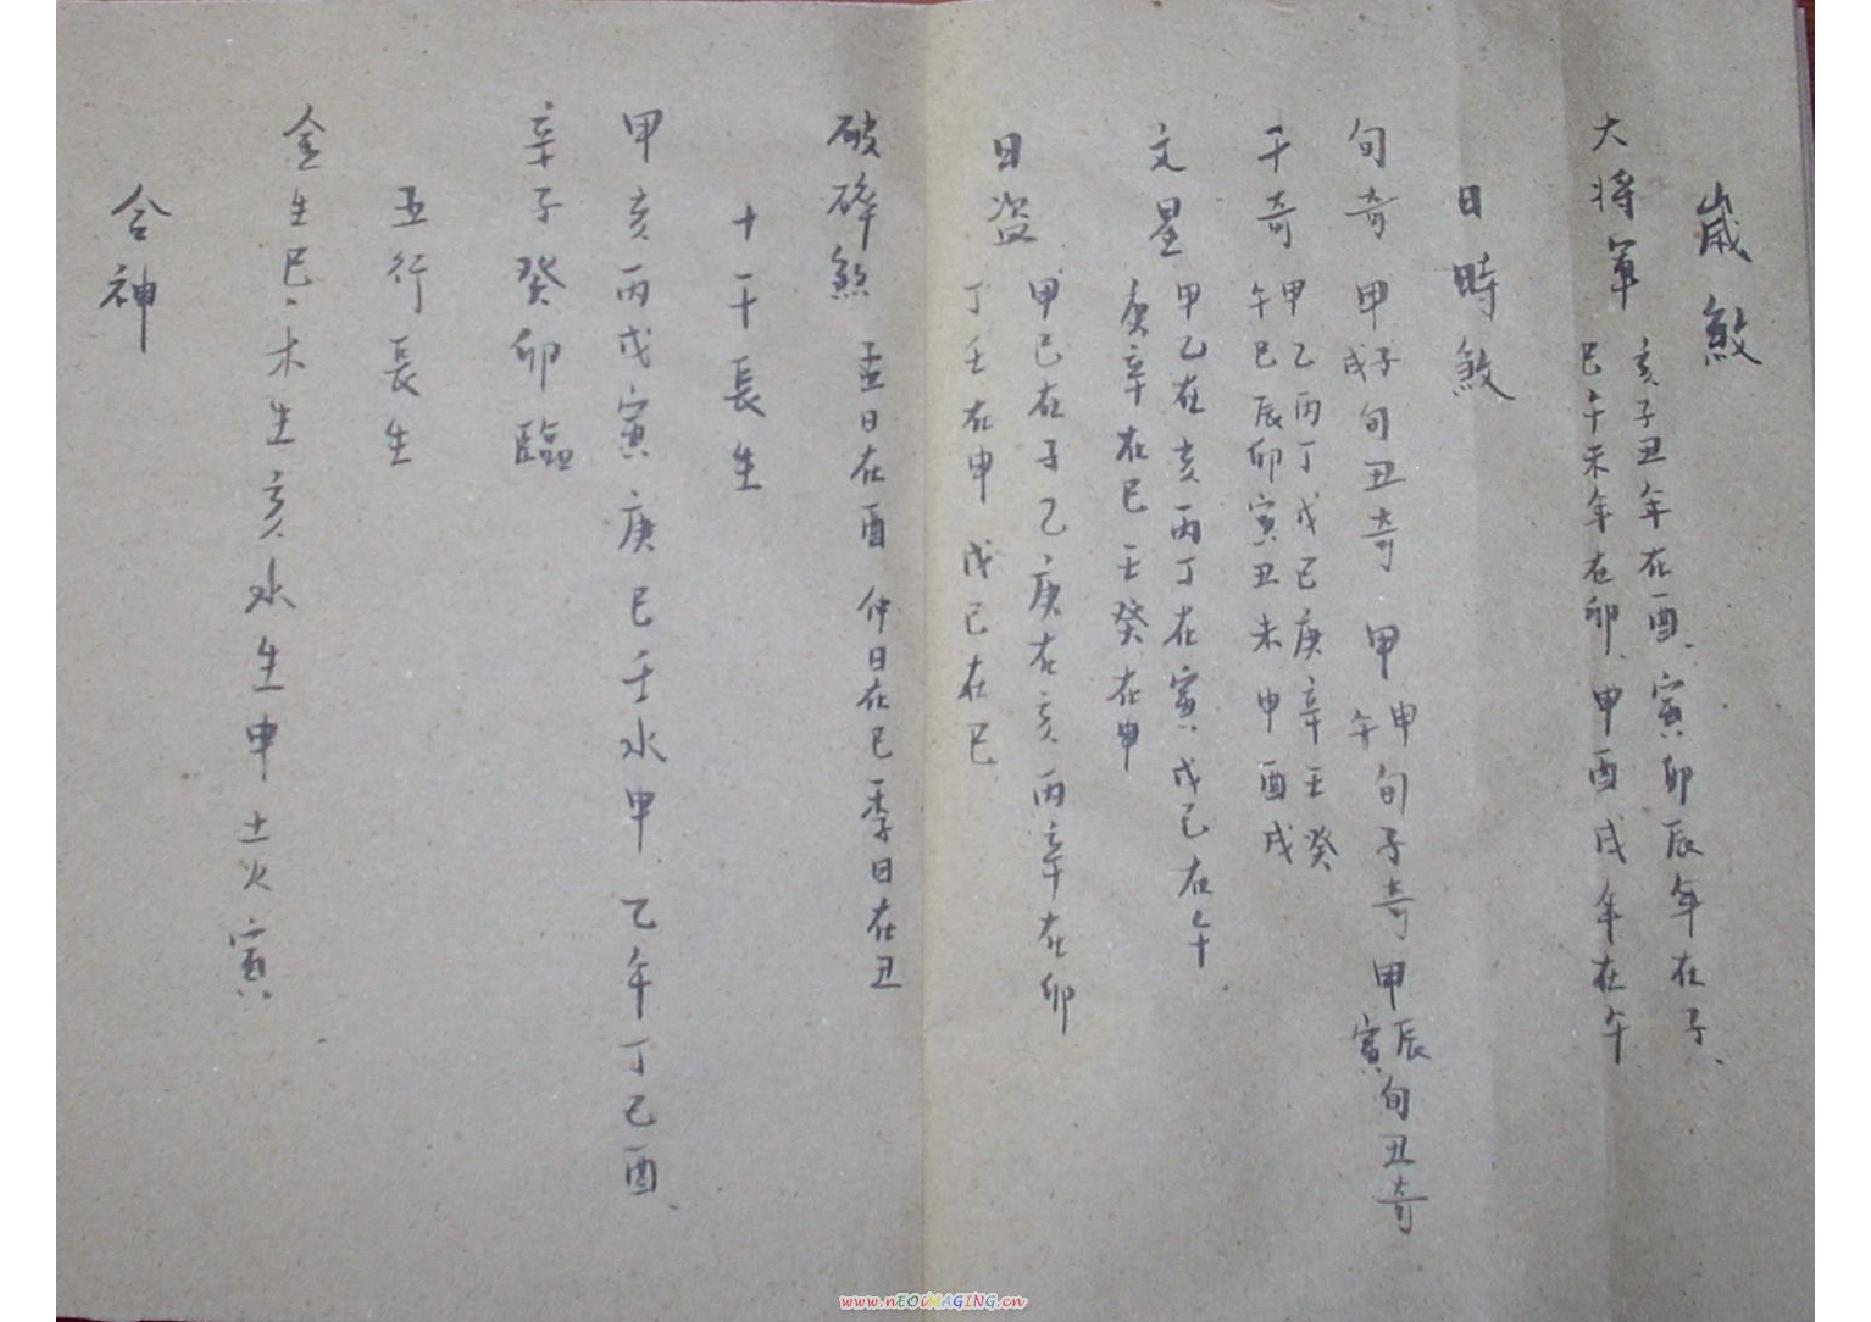 歲煞
大将軍
亥子丑年在酉、寅卯辰年在子、
巳午未年在卯、甲酉戌年在午
日時煞
旬奇 甲子戌旬丑奇 甲申午旬子奇 甲辰寅旬丑奇
干奇
甲乙丙丁戊己庚辛壬癸
午巳辰卯寅丑未申酉戌
文星
甲乙在亥丙丁在寅戊己在午
庚辛在巳壬癸在申
日盗
甲己在子乙庚在亥丙辛在卯
丁壬在申戊己在巳
破碎煞 孟日在酉 仲日在巳季日在丑
十干長生
甲亥丙戊寅庚巳壬水甲乙午丁己酉、
辛子癸卯臨
五行長生
金生巳、木生亥水生申土火寅
合神
www.nEOiMAGING.cn